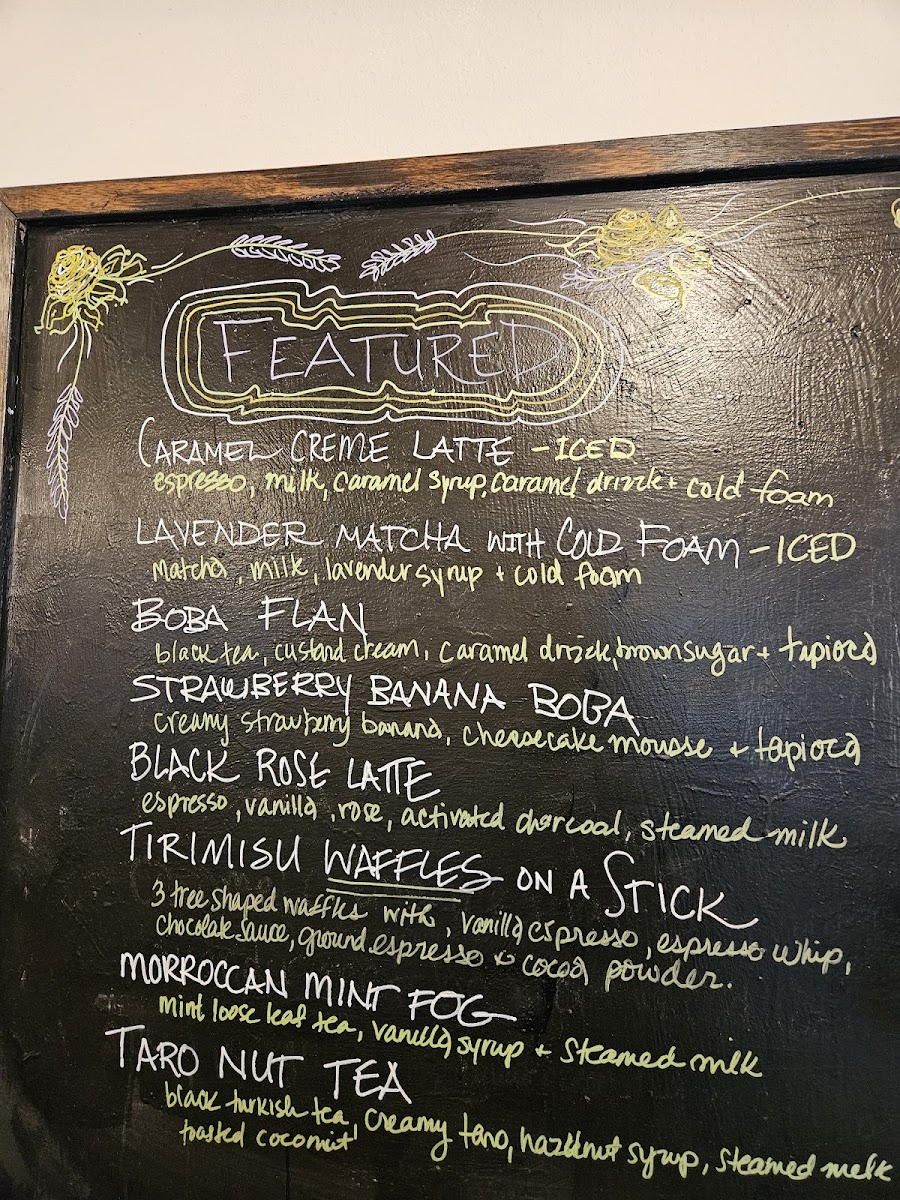 FEATURED
CARAMEL CREME LATTE - ICED
espresso, milk, caramel syrup, caramel drizzle + cold foam
LAVENDER MATCHA WITH COLD FOAM - ICED
Matcha, milk, lavender syrup + cold foam
BOBA FLAN
black tea, custard cream, caramel drizzle, brown sugar + tapioca
STRAWBERRY BANANA BOBA
creamy strawberry banana, cheesecake mousse + tapioca
BLACK ROSE LATTE
espresso, vanilla, rose, activated charcoal, steamed milk
TIRIMISU WAFFLES ON A STICK
3 tree shaped waffles with, vanilla espresso, espresso whip,
chocolate sauce, ground espresso + cocoa powder.
MORROCCAN MINT FOG
mint loose leaf tea, vanilla syrup + steamed milk
TARO NUT TEA
black turkish tea, creamy taro, hazelnut syrup, steamed milk
toasted coconut